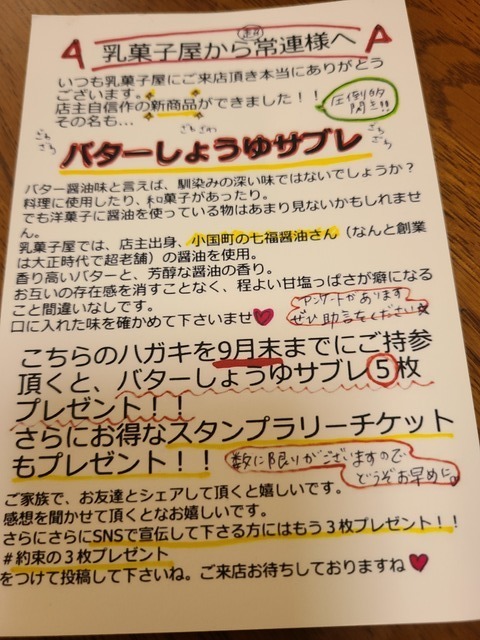 乳菓子屋から超常連様へ
いつも乳菓子屋にご来店頂き本当にありがとう
ございます。
店主自信作の新商品ができました！！
その名も…
圧倒的
閃き!!
ざわ
ざわ
ざわ
ざわ
ざわ
ざわ
バターしょうゆサブレ
バター醤油味と言えば、馴染みの深い味ではないでしょうか？
料理に使用したり、和菓子があったり。
でも洋菓子に醤油を使っている物はあまり見ないかもしれませ
ん。
乳菓子屋では、店主出身、小国町の七福醤油さん（なんと創業
は大正時代で超老舗）の醤油を使用。
香り高いバターと、芳醇な醤油の香り。
お互いの存在感を消すことなく、程よい甘塩っぱさが癖になる
こと間違いなしです。
口に入れた味を確かめて下さいませ♥
アンケートがあります
ぜひ助言をください☆
こちらのハガキを9月末までにご持参
頂くと、バターしょうゆサブレ5枚
プレゼント！！
さらにお得なスタンプラリーチケット
もプレゼント！！
数に限りがございますので
どうぞお早めに。
ご家族で、お友達とシェアして頂くと嬉しいです。
感想を聞かせて頂くとなお嬉しいです。
さらにさらにSNSで宣伝して下さる方にはもう３枚プレゼント！！
＃約束の３枚プレゼント
をつけて投稿して下さいね。ご来店お待ちしておりますね♥